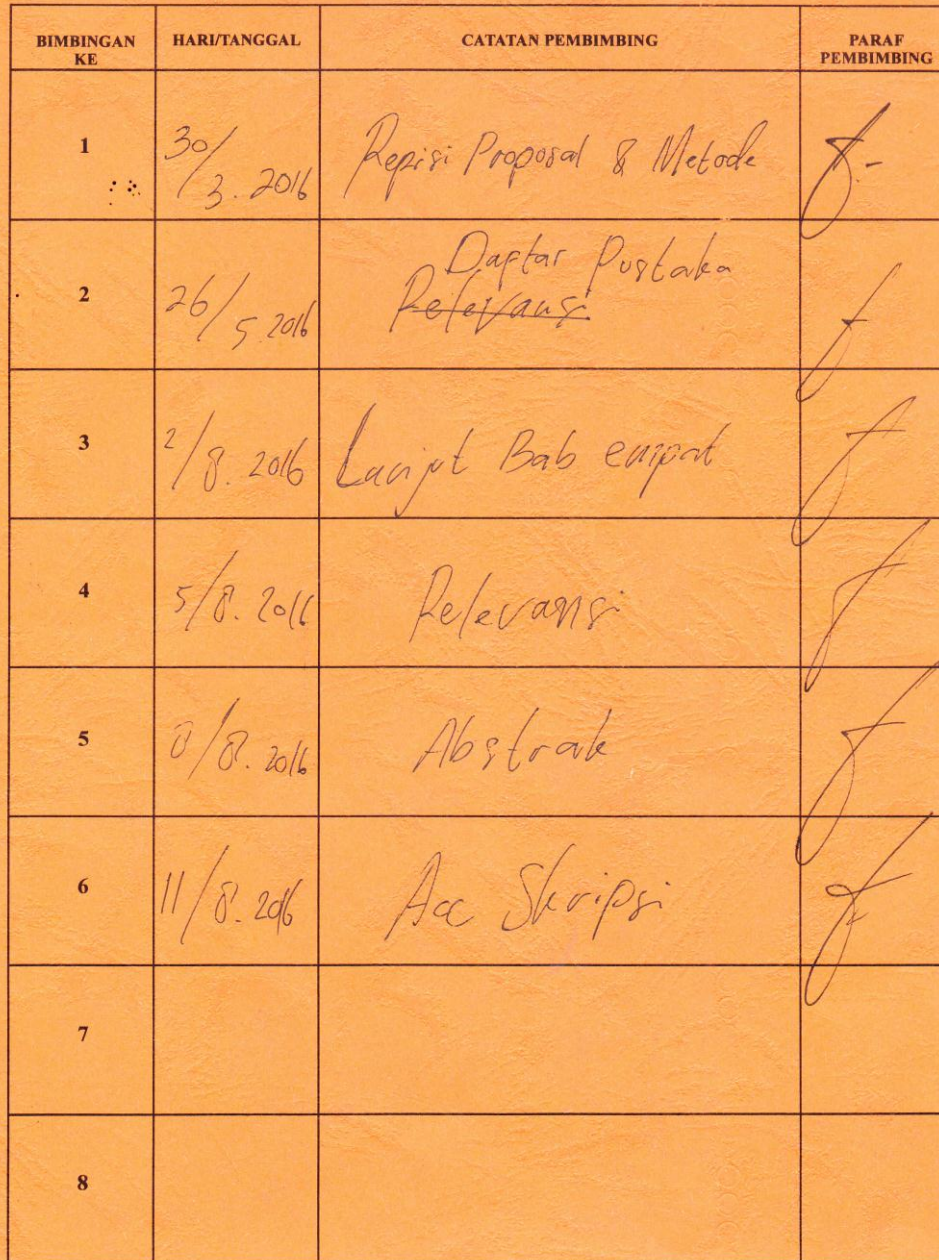 BIMBINGAN KE HARI/TANGGAL CATATAN PEMBIMBING PARAF PEMBIMBING
1 30/3.2016 Repisi Proposal & Metode
Daftar Pustaka
2 26/5.2016 Relevansi
3 2/8.2016 Lanjut Bab empat
4 5/8.2016 Relevansi
5 8/8.2016 Abstrak
6 11/8.2016 Acc Skripsi
7
8